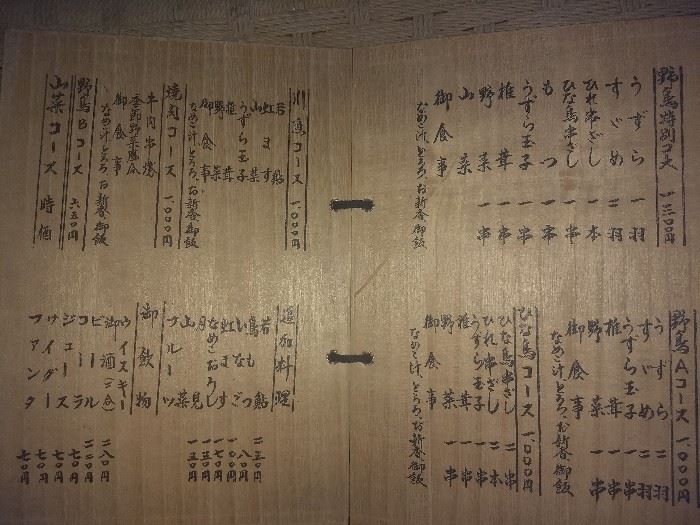 野鳥特別コース 一、二〇〇円
うずら 一羽
すゞめ 二羽
ひれ串ざし 一本
ひな鳥串ざし 一串
もつ 一串
うずら玉子 一串
椎茸 一串
野菜 一串
山菜
御食事
なめこ汁、とろろ、お新香、御飯
野鳥Aコース 一、〇〇〇円
うずら 一羽
すゞめ 二羽
うずら玉子 一串
椎茸 一串
野菜 一串
御食事
なめこ汁、とろろ、お新香、御飯
ひな鳥コース 一、〇〇〇円
ひな鳥串ざし 二串
ひれ串ざし 二本
うずら玉子 一串
椎茸 一串
野菜 一串
御食事
なめこ汁、とろろ、お新香、御飯
川魚コース 一、〇〇〇円
若鮎
虹ます
山菜
うずら玉子
椎茸
野菜
御食事
なめこ汁、とろろ、お新香、御飯
焼肉コース 一、〇〇〇円
牛肉串焼
季節野菜
御食事
なめこ汁、とろろ、お新香、御飯
野鳥Bコース 六五〇円
山菜コース 時価
追加料理
若鮎 二五〇円
鳥もつ 一五〇円
いなご 八〇円
虹ます 一〇〇円
なめこおろし 一七〇円
月見 一五〇円
山菜 一五〇円
フルーツ
御飲物
ウイスキー
御酒(一合) 二八〇円
ビール 二二〇円
コーラ 七〇円
ジュース 七〇円
サイダー 七〇円
ファンタ 七〇円